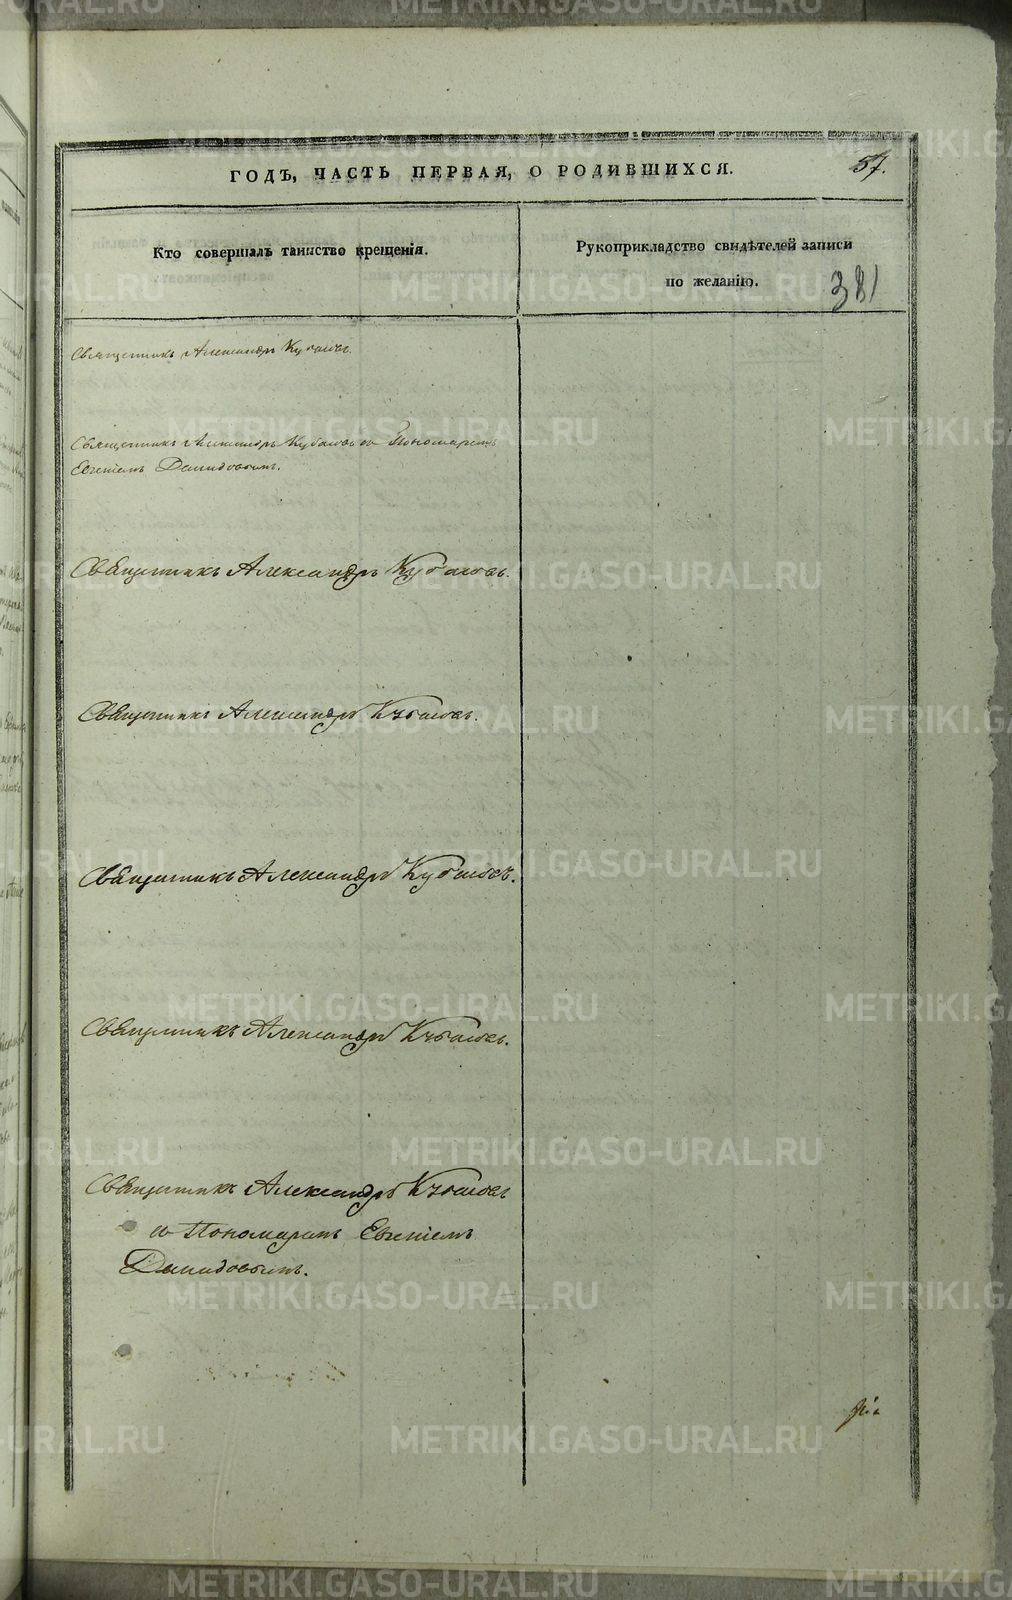 ГОДЪ, ЧАСТЬ ПЕРВАЯ, О РОДИВШИХСЯ.
57.
Кто совершалъ таинство крещенія.
Рукоприкладство свидѣтелей записи
по желанію.
381
Священникъ Александръ Кубасовъ.
Священникъ Александръ Кубасовъ съ Пономаремъ
Евгеніемъ Давидовымъ.
Священникъ Александръ Кубасовъ.
Священникъ Александръ Кубасовъ.
Священникъ Александръ Кубасовъ.
Священникъ Александръ Кубасовъ.
Священникъ Александръ Кубасовъ
съ Пономаремъ Евгеніемъ
Давидовымъ.
METRIKI.GASO-URAL.RU